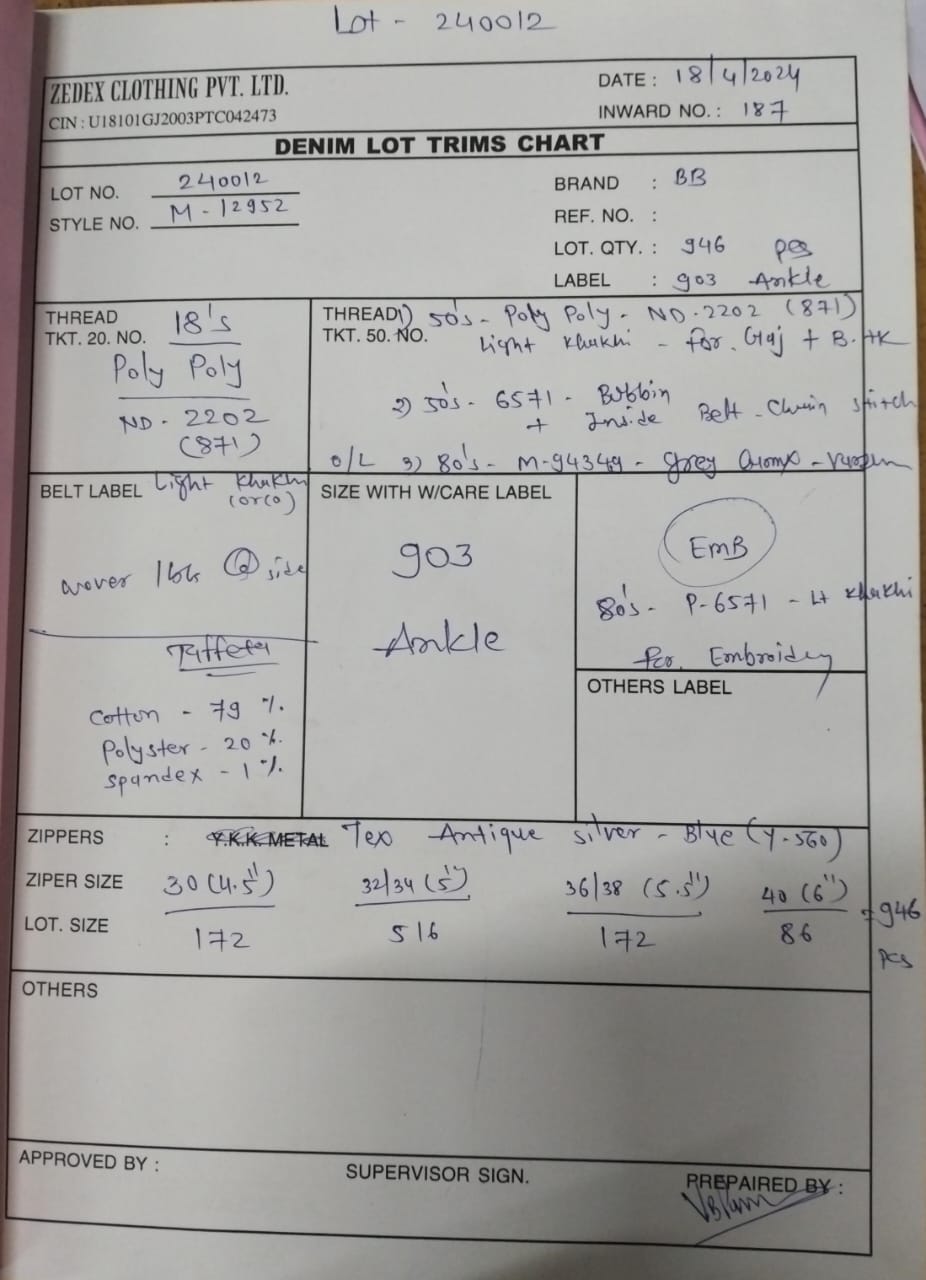 Lot - 240012
ZEDEX CLOTHING PVT. LTD.
CIN : U18101GJ2003PTC042473
DATE : 18/4/2024
INWARD NO. : 187
DENIM LOT TRIMS CHART
LOT NO. 240012
STYLE NO. M-12952
BRAND : BB
REF. NO. :
LOT. QTY. : 946 pcs
LABEL : 903 Ankle
THREAD
TKT. 20. NO. 18's
Poly Poly
ND-2202
(871)
Light Khakhi
(orco)
THREAD
TKT. 50. NO.
1) 50's - Poly Poly - ND-2202 (871)
Light Khakhi - for Gaj + B.TK
2) 50's - 6571 - Bobbin
+ Inside Belt - Chain stitch
O/L 3) 80's - M-94349 - Grey
BELT LABEL
@ side
Taffeta
Cotton - 79 %.
Polyster - 20 %.
Spandex - 1 %.
SIZE WITH W/CARE LABEL
903
Ankle
EMB
80's - P-6571 - Lt Khakhi
for Embroidery
OTHERS LABEL
ZIPPERS : Y.K.K. METAL Tex Antique silver - Blue (Y-560)
ZIPER SIZE 30 (4.5") 32/34 (5") 36/38 (5.5") 40 (6")
LOT. SIZE 172 516 172 86 = 946
pcs
OTHERS
APPROVED BY :
SUPERVISOR SIGN.
PREPAIRED BY :